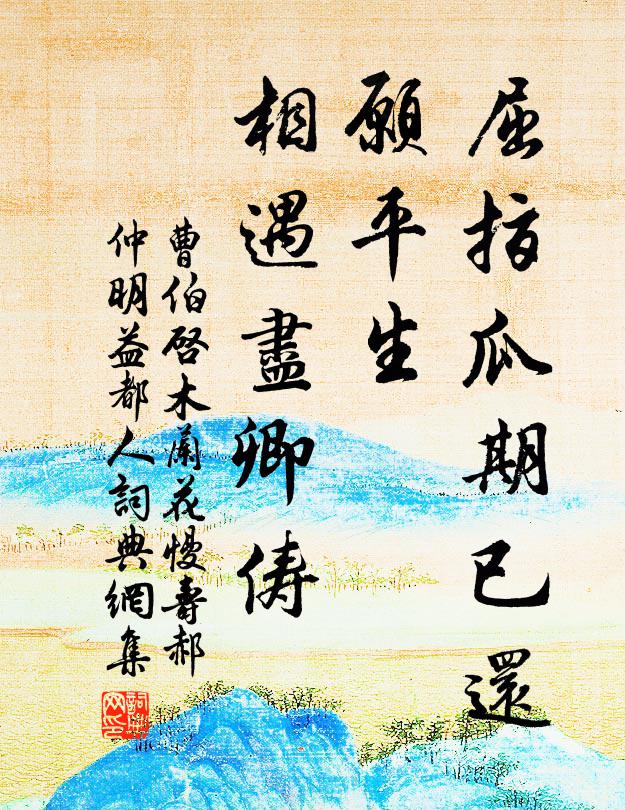 屈指瓜期已還
願平生
相遇盡卿儔
曹伯啓木蘭花慢壽郝
仲明益都人詞典網集